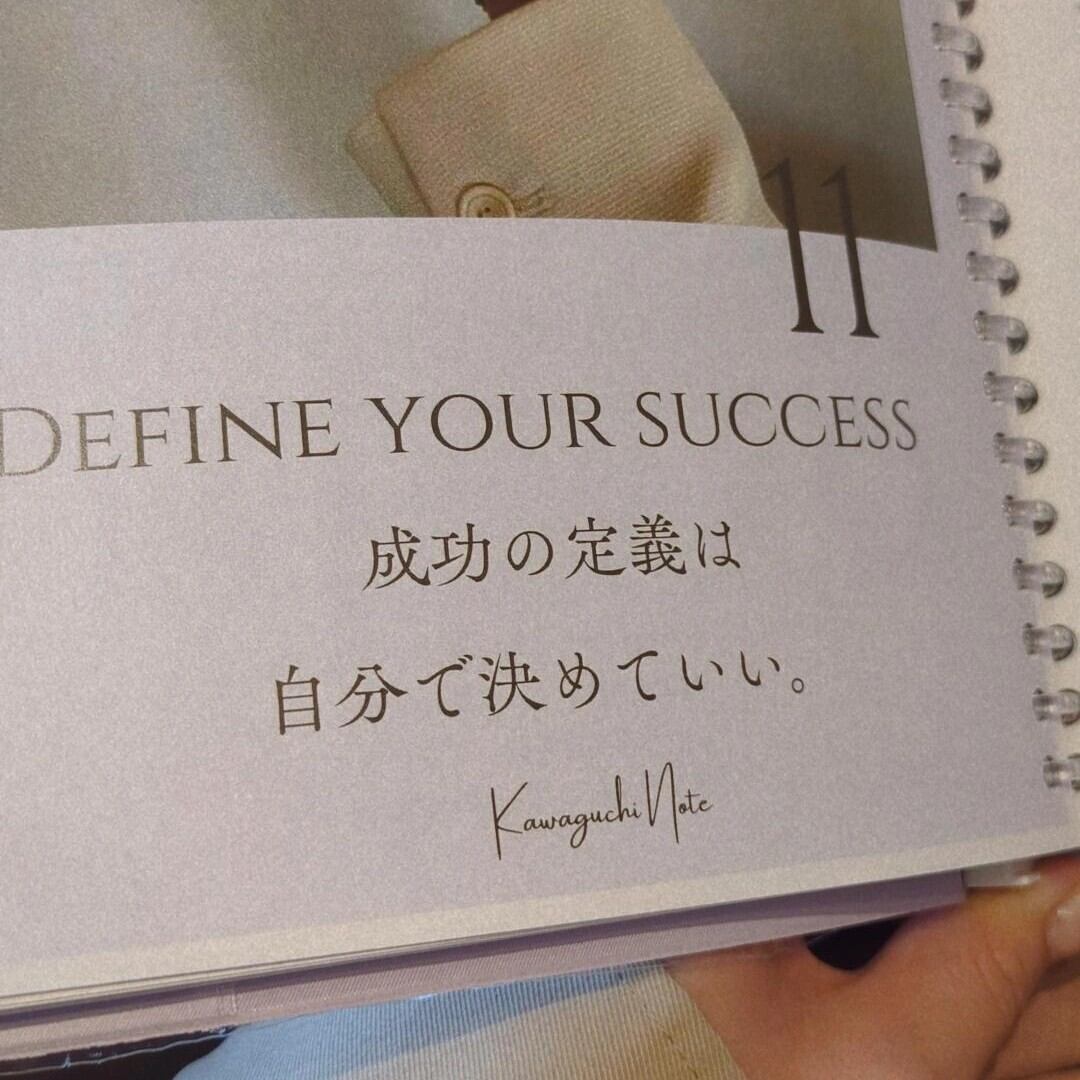 11
DEFINE YOUR SUCCESS
成功の定義は
自分で決めていい。
Kawaguchi Note